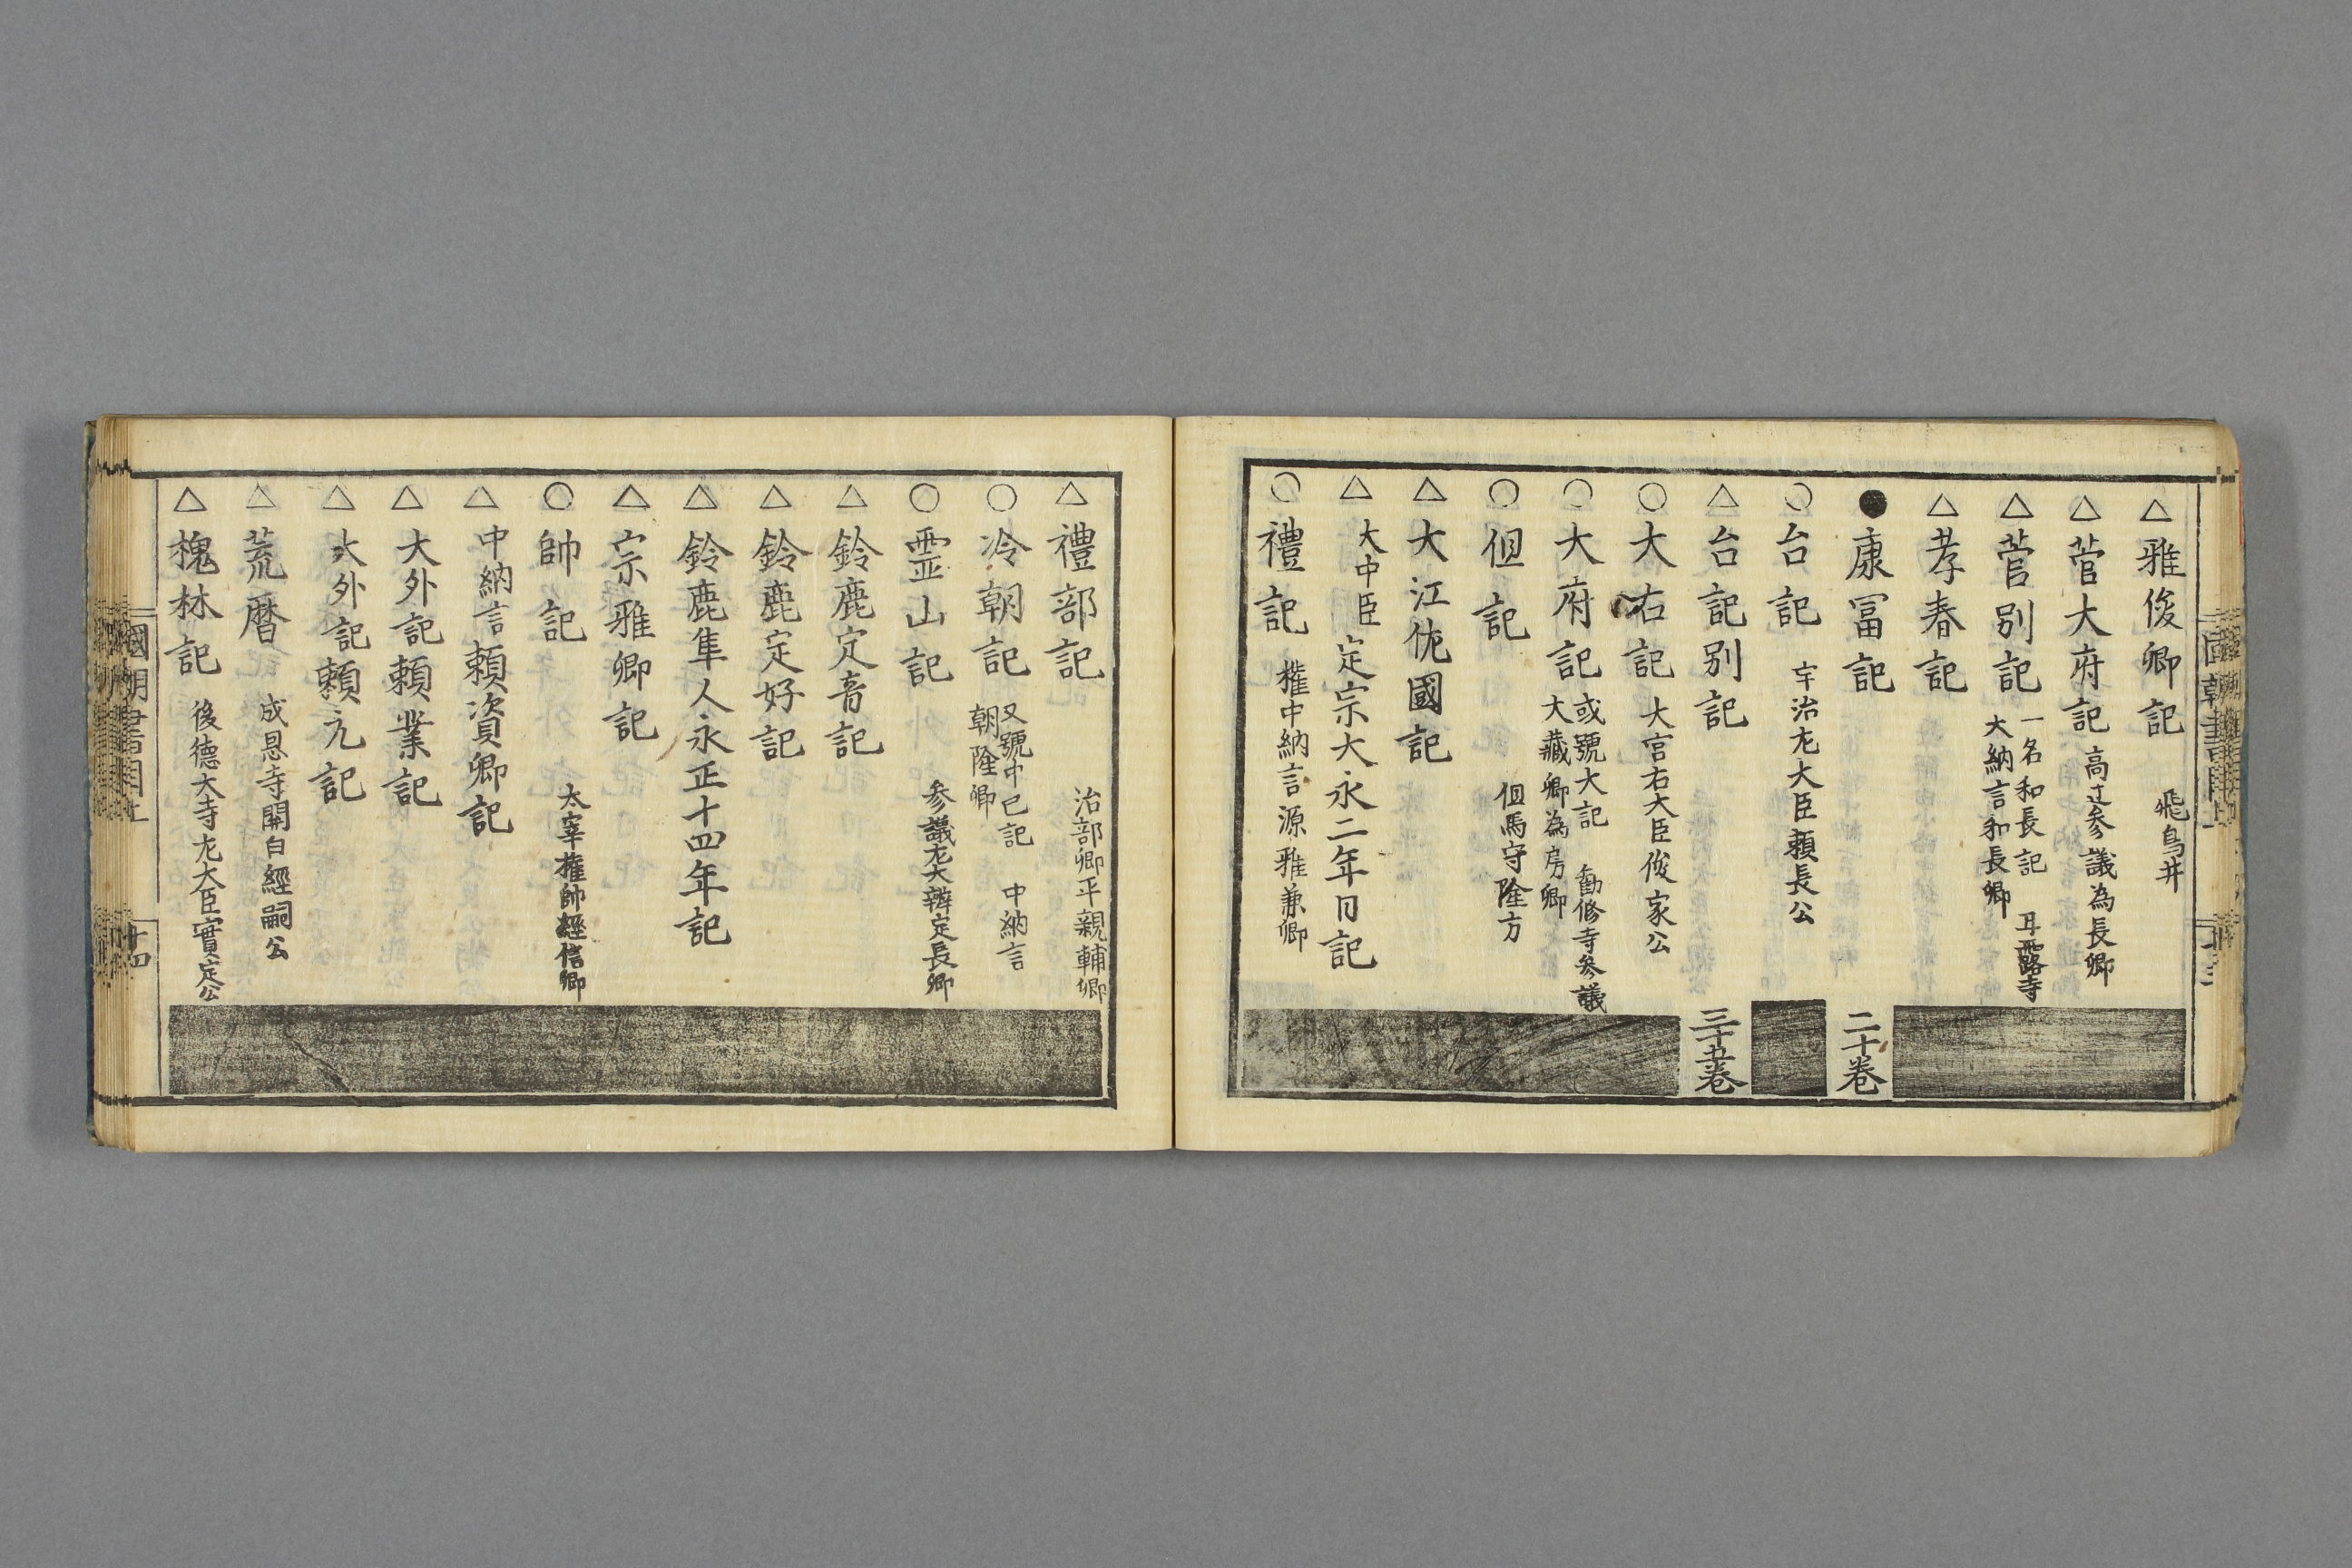 △雅俊卿記 飛鳥井
△菅大府記 高辻参議為長卿
△菅別記 一名和長記 耳露寺大納言和長卿
△孝春記
●康冨記 二十卷
○台記 宇治尢大臣頼長公
△台記別記 三十五卷
○大右記 大宮右大臣俊家公
○大府記 或號大記 勧修寺参議大藏卿為房卿
○但記 但馬守隆方
△大江侂國記
△大中臣定宗大永二年日記
○禮記 権中納言源雅兼卿
△禮部記 治部卿平親輔卿
○冷朝記 又號中已記 中納言朝隆卿
○霊山記 参議尢大辨定長卿
△鈴鹿定音記
△鈴鹿定好記
△鈴鹿隼人永正十四年記
△宗雅卿記
○帥記 太宰権帥經信卿
△中納言頼資卿記
△大外記頼業記
△大外記頼元記
△荒暦 成恩寺關白經嗣公
△槐林記 後德大寺尢大臣實定公
十四